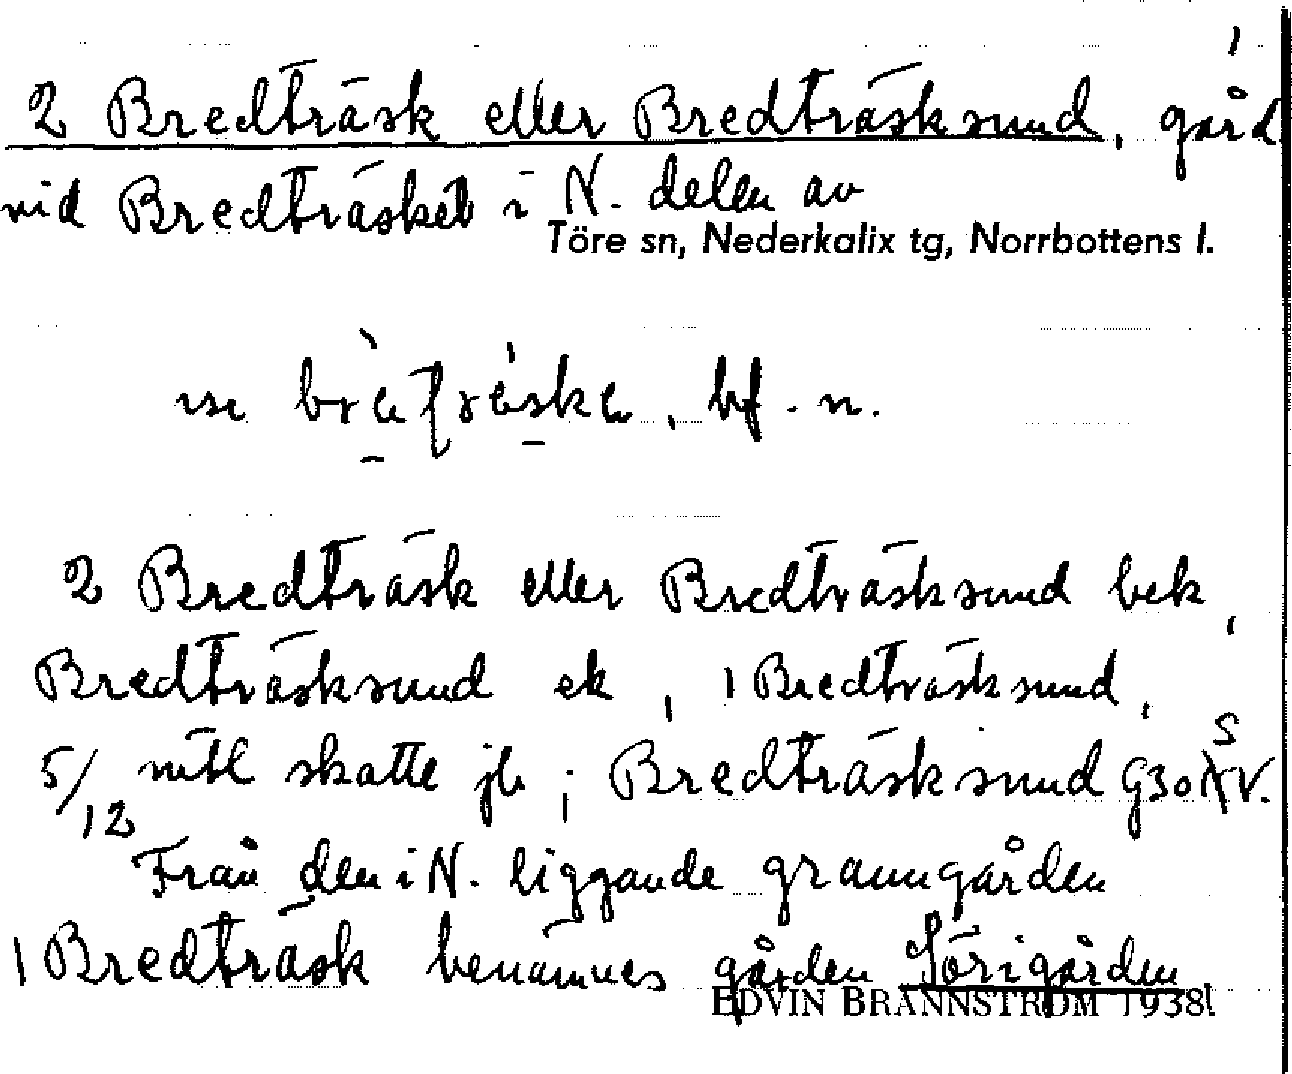 1
2 Bredträsk eller Bredträsksund, gård
vid Bredträsket i N. delen av
Töre sn, Nederkalix tg, Norrbottens l.
bf. n.
2 Bredträsk eller Bredträsksund bek,
Bredträsksund ek, 1 Bredträsksund,
5/12 mtl skatte jb; Bredträsksund G30 SV.
Från den i N. liggande granngården
1 Bredträsk benämnes gården Sörigården
EDVIN BRÄNNSTRÖM 1938